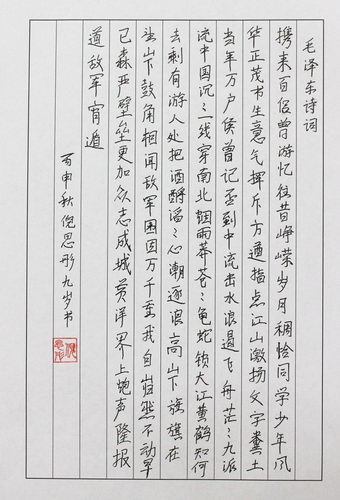 毛泽东诗词
携来百侣曾游忆往昔峥嵘岁月稠恰同学少年风
华正茂书生意气挥斥方遒指点江山激扬文字粪土
当年万户侯曾记否到中流击水浪遏飞舟茫〻九派
流中国沉〻一线穿南北烟雨莽苍〻龟蛇锁大江黄鹤知何
去剩有游人处把酒酹滔〻心潮逐浪高山下旌旗在
望山下鼓角相闻敌军围困万千重我自岿然不动早
已森严壁垒更加众志成城黄洋界上炮声隆报
道敌军宵遁
丙申秋倪思彤九岁书